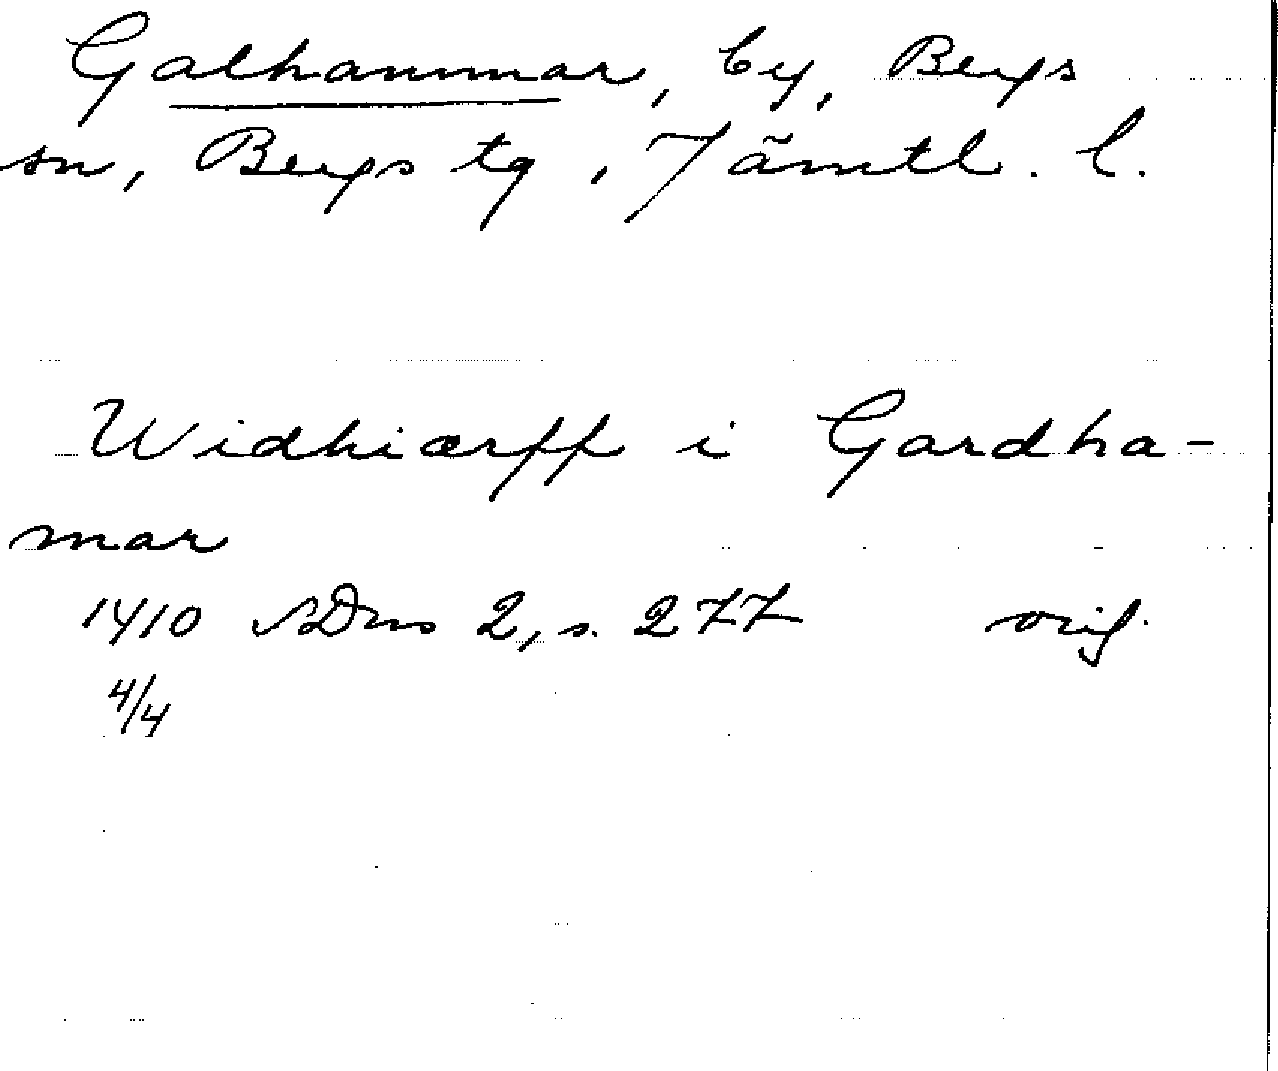 Galhammar, by, Bergs
sn, Bergs tg, Jämtl. l.
Widhiærff i Gardha-
mar
1410 SDns 2, s. 277 orig.
4/4